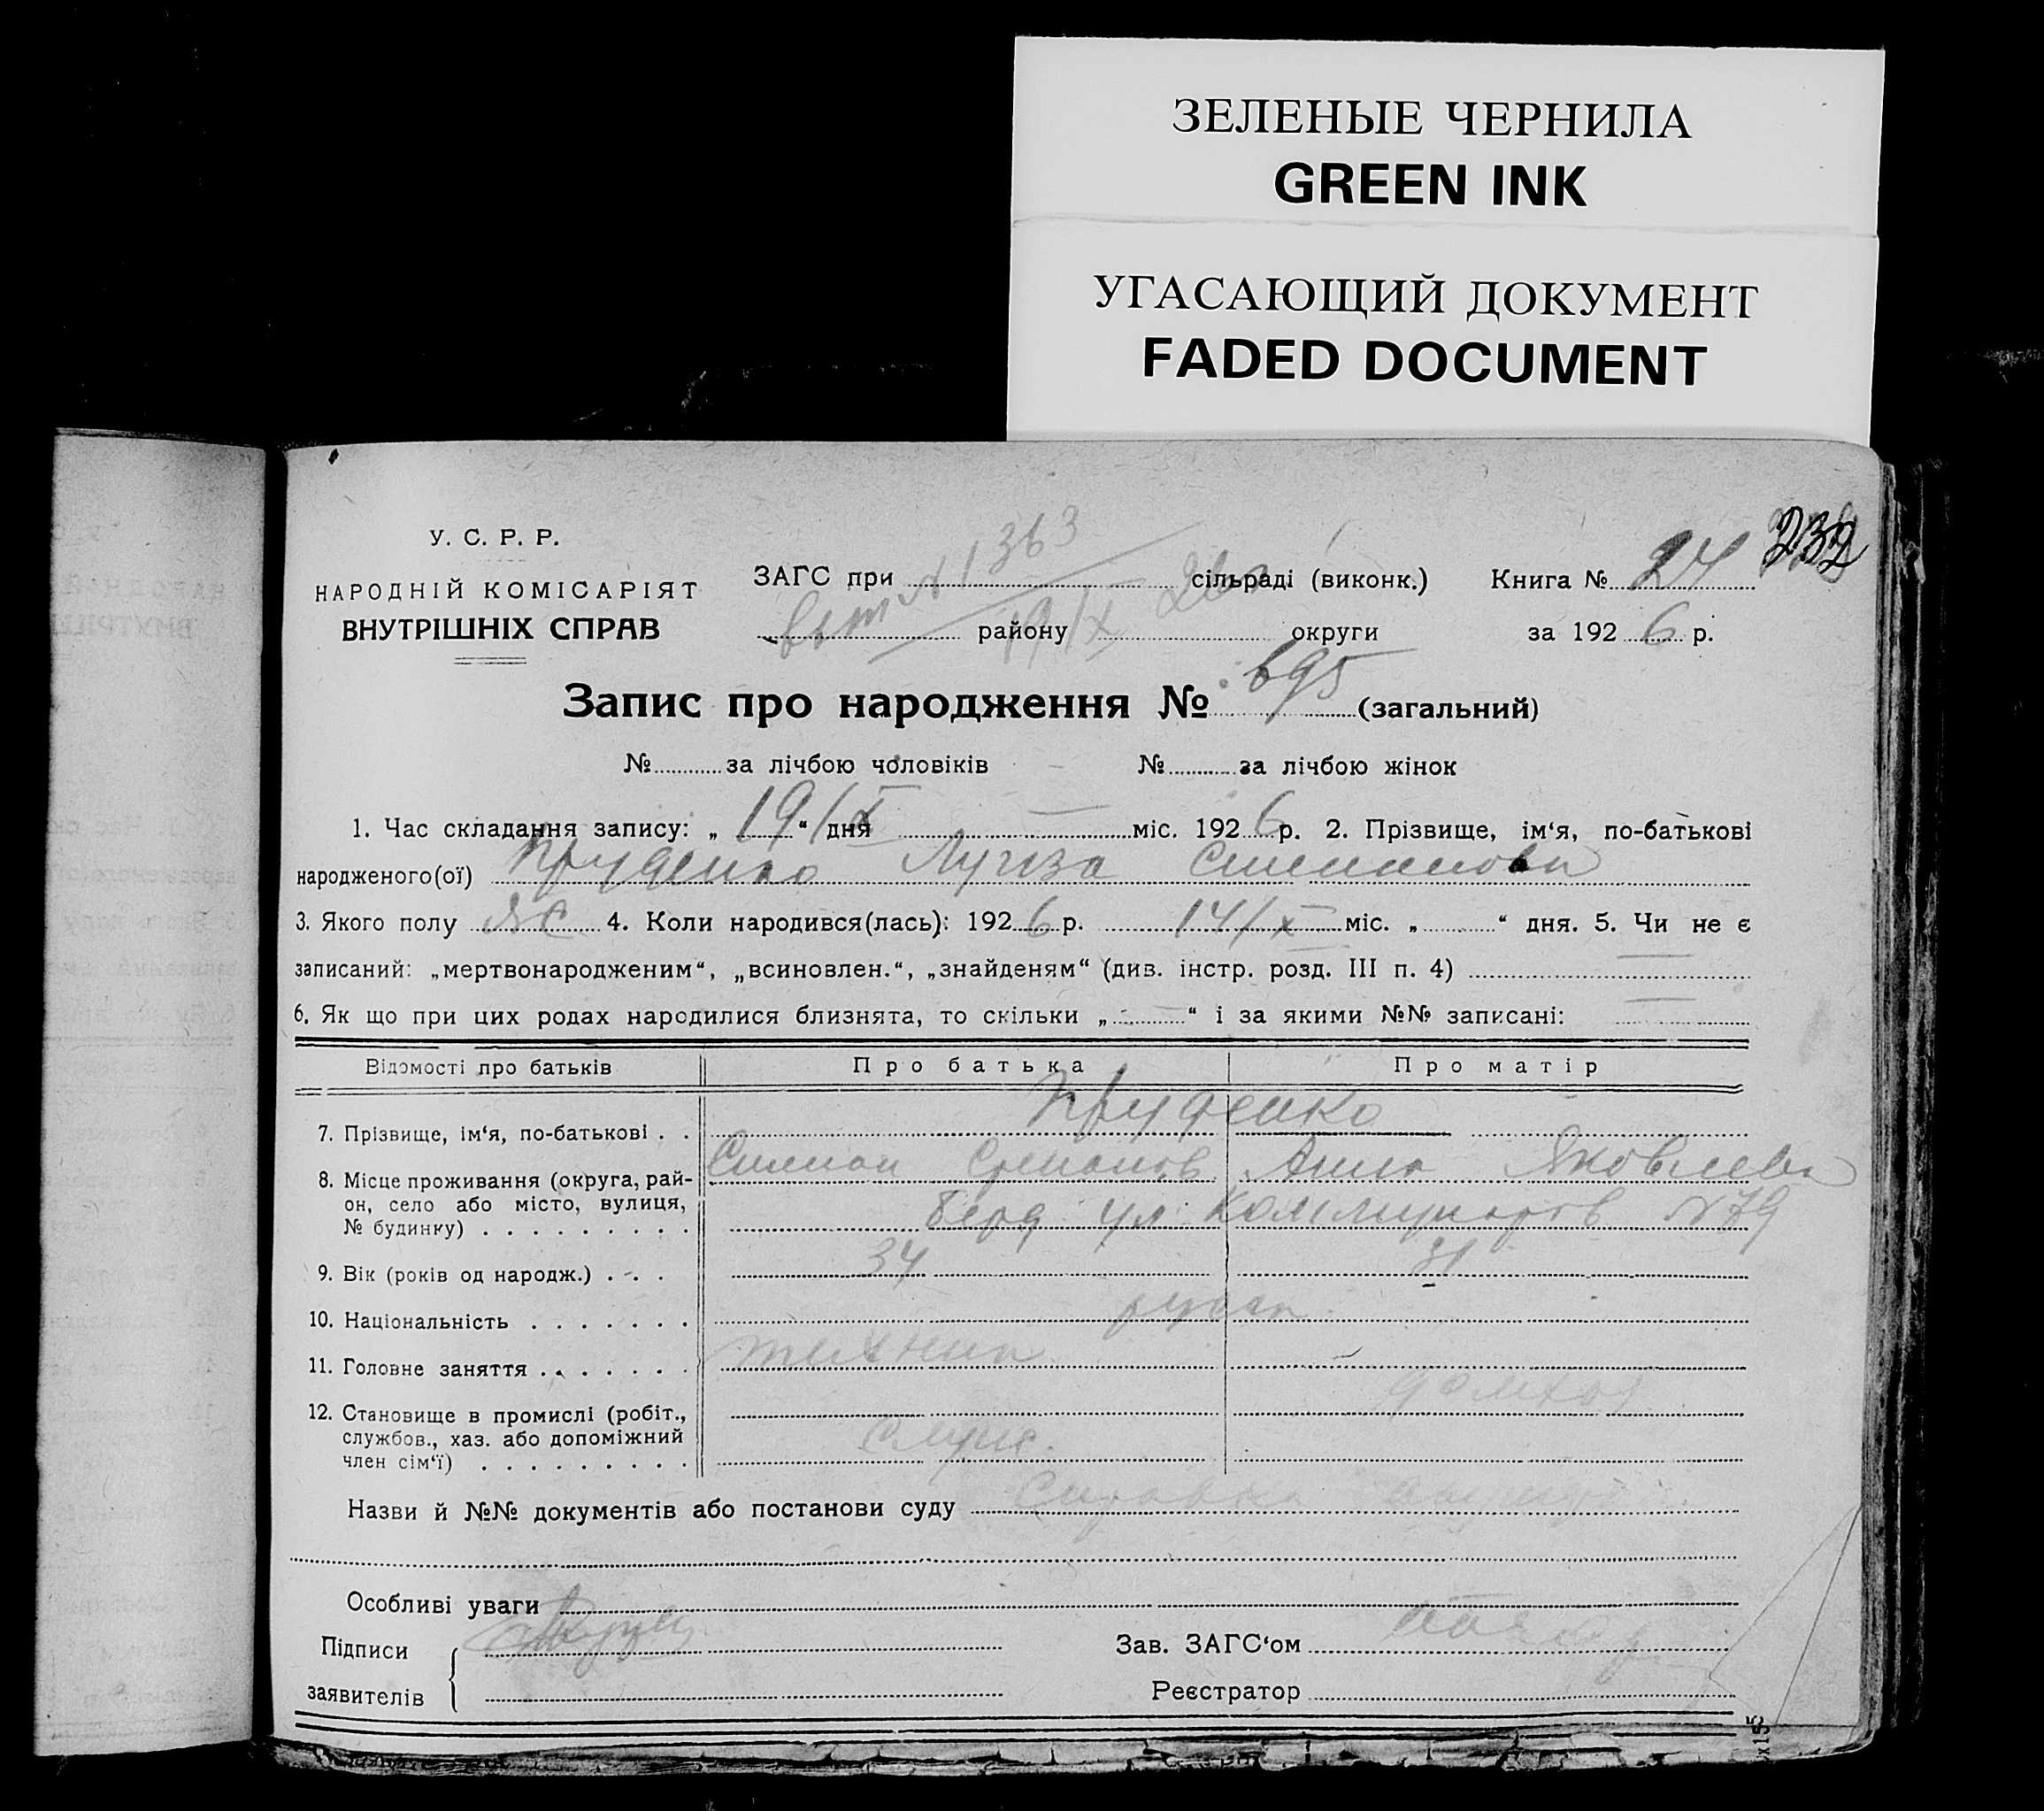 ЗЕЛЕНЫЕ ЧЕРНИЛА
GREEN INK
УГАСАЮЩИЙ ДОКУМЕНТ
FADED DOCUMENT
232
У. С. Р. Р.
НАРОДНІЙ КОМІСАРІЯТ
ВНУТРІШНІХ СПРАВ
ЗАГС при №1363 сільраді (виконк.)
района району 19/X округи
Книга № 24
за 192 6 р.
Запис про народження № 695 (загальний)
№ за лічбою чоловіків № за лічбою жінок
1. Час складання запису: „ 19/X “ дня міс. 192 6 р. 2. Прізвище, ім‘я, по-батькові
народженого(ої) Пруденко Луиза
3. Якого полу ж 4. Коли народився(лась): 192 6 р. 14/X міс. „ “ дня. 5. Чи не є
записаний: „мертвонародженим“, „всиновлен.“, „знайденям“ (див. інстр. розд. III п. 4)
6. Як що при цих родах народилися близнята, то скільки „ — “ і за якими №№ записані: —
Відомості про батьків Про батька Про матір
7. Прізвище, ім‘я, по-батькові . . Пруденко
Степанов Анна Яковлева
8. Місце проживання (округа, рай-
он, село або місто, вулиця,
№ будинку) . . . . . . . . . Берд ул. Коммунаров №79
9. Вік (років од народж.) . . . 34 31
10. Національність . . . . . . . русск
11. Головне заняття . . . . . . . техник
домхоз
12. Становище в промислі (робіт.,
службов., хаз. або допоміжний
член сім‘ї) . . . . . . . . . Служ.
Назви й №№ документів або постанови суду Справка
Особливі уваги
Підписи
заявителів
Зав. ЗАГС‘ом
Реєстратор